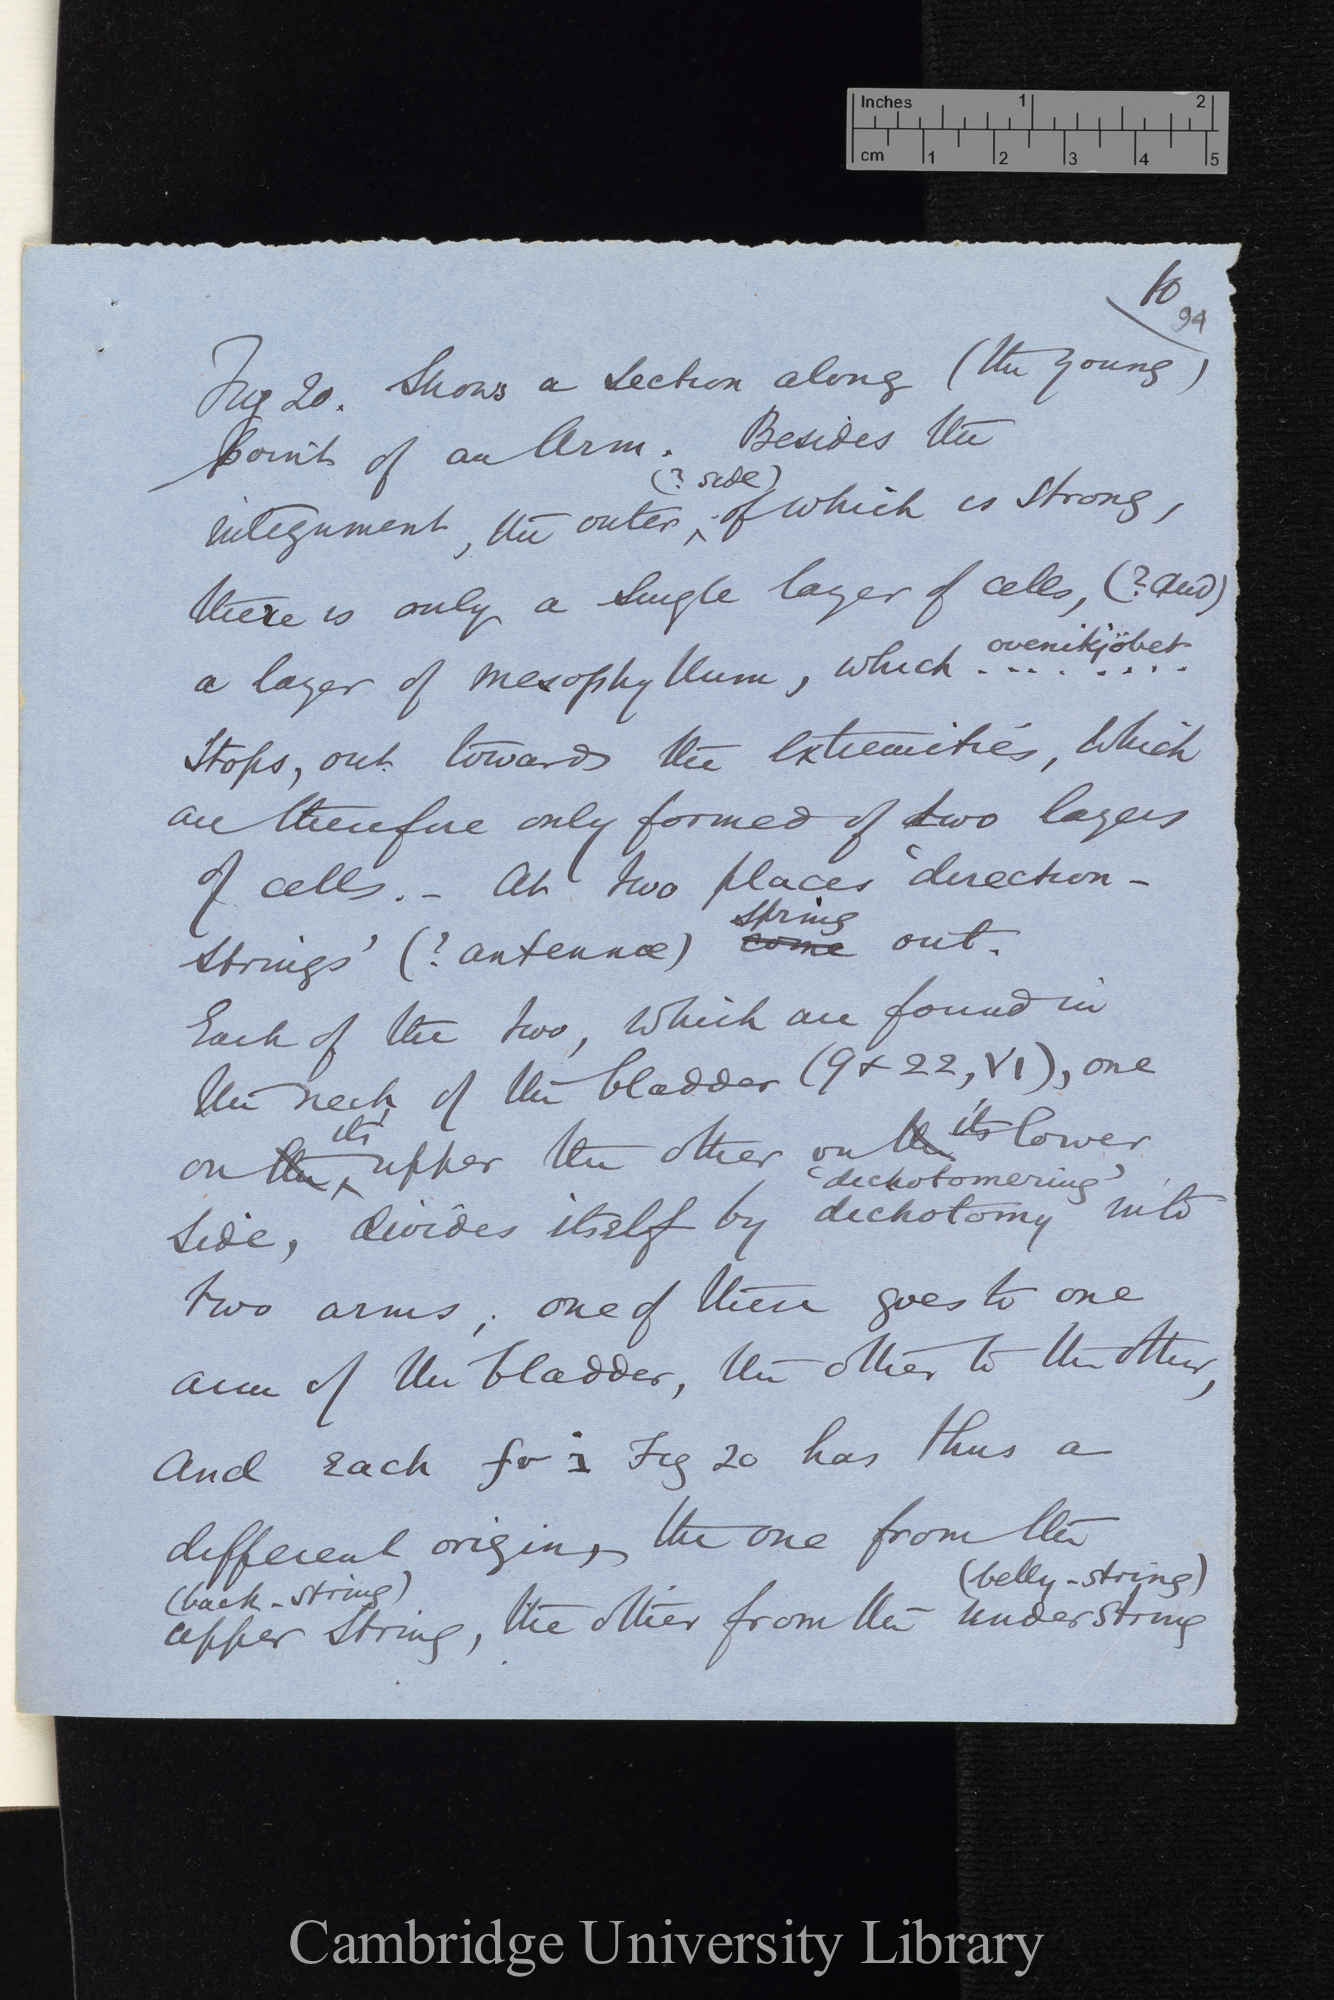 Inches 1 2
cm 1 2 3 4 5
10
94
Fig 20. Shows a section along (the young)
point of an Arm. Besides the
(? side)
integument, the outer ‸ of which is strong,
there is only a single layer of cells, (? and)
a layer of mesophyllum, which ovenikjöbet
stops, out towards the extremities, which
are therefore only formed of two layers
of cells. - At two places 'direction-
spring
strings' (? antennæ) come out.
Each of the two, which are found in
the neck of the bladder (9 + 22, VI), one
its its
on the ‸ upper the other on the lower
'dichotomering'
side, divides itself by dichotomy into
two arms; one of these goes to one
arm of the bladder, the other to the other,
and each fv i Fig 20 has thus a
different origin, the one from the
(back-string) (belly-string)
upper string, the other from the understring
Cambridge University Library